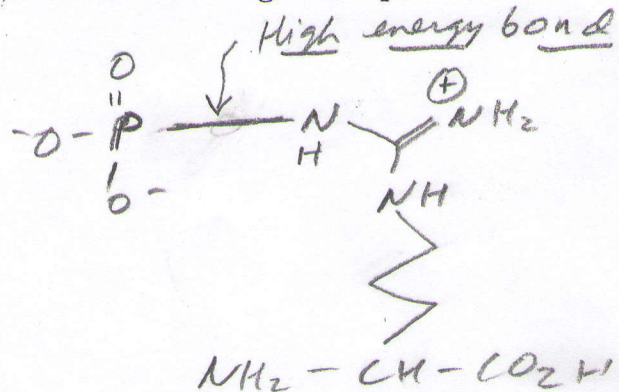 High energy bond
O
⊕
-O-P-N=NH2
H
O-
NH
NH2-CH-CO2H